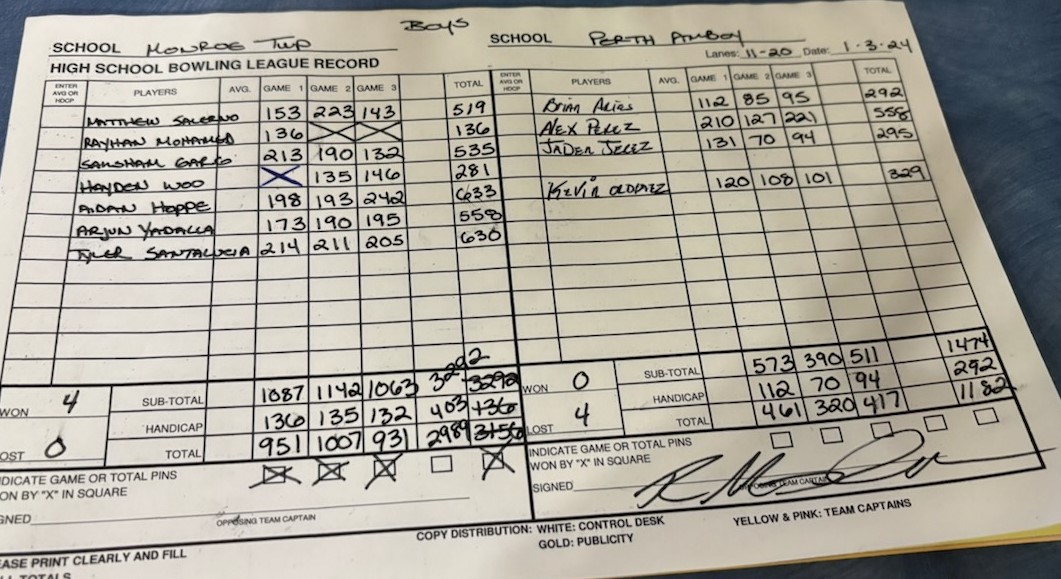 Boys
SCHOOL MONROE TWP SCHOOL PERTH AMBOY
Lanes: 11-20 Date: 1-3-24
HIGH SCHOOL BOWLING LEAGUE RECORD
ENTER AVG OR HDCP PLAYERS AVG. GAME 1 GAME 2 GAME 3 TOTAL ENTER AVG OR HDCP PLAYERS AVG. GAME 1 GAME 2 GAME 3 TOTAL
MATTHEW SALERNO 153 223 143 519 Brian Arias 112 85 95 292
RAYHAN MOHAMED 136 X X 136 ALEX PEREZ 210 127 221 558
GARG 213 190 132 535 JADEN JEREZ 131 70 94 295
HAYDEN WOO X 135 146 281 KEVIN 120 108 101 329
AIDAN HOPPE 198 193 242 633
ARJUN YADALLA 173 190 195 558
TYLER SANTALUCIA 214 211 205 630
3292
WON 4 SUB-TOTAL 1087 1142 1063 3292 WON 0 SUB-TOTAL 573 390 511 1474
HANDICAP 136 135 132 403 136 HANDICAP 112 70 94 292
LOST 0 TOTAL 951 1007 931 2989 3156 LOST 4 TOTAL 461 320 417 1182
INDICATE GAME OR TOTAL PINS
WON BY "X" IN SQUARE X X X X
SIGNED
OPPOSING TEAM CAPTAIN
INDICATE GAME OR TOTAL PINS
WON BY "X" IN SQUARE
SIGNED
OPPOSING TEAM CAPTAIN
COPY DISTRIBUTION: WHITE: CONTROL DESK YELLOW & PINK: TEAM CAPTAINS
GOLD: PUBLICITY
EASE PRINT CLEARLY AND FILL
LL TOTALS